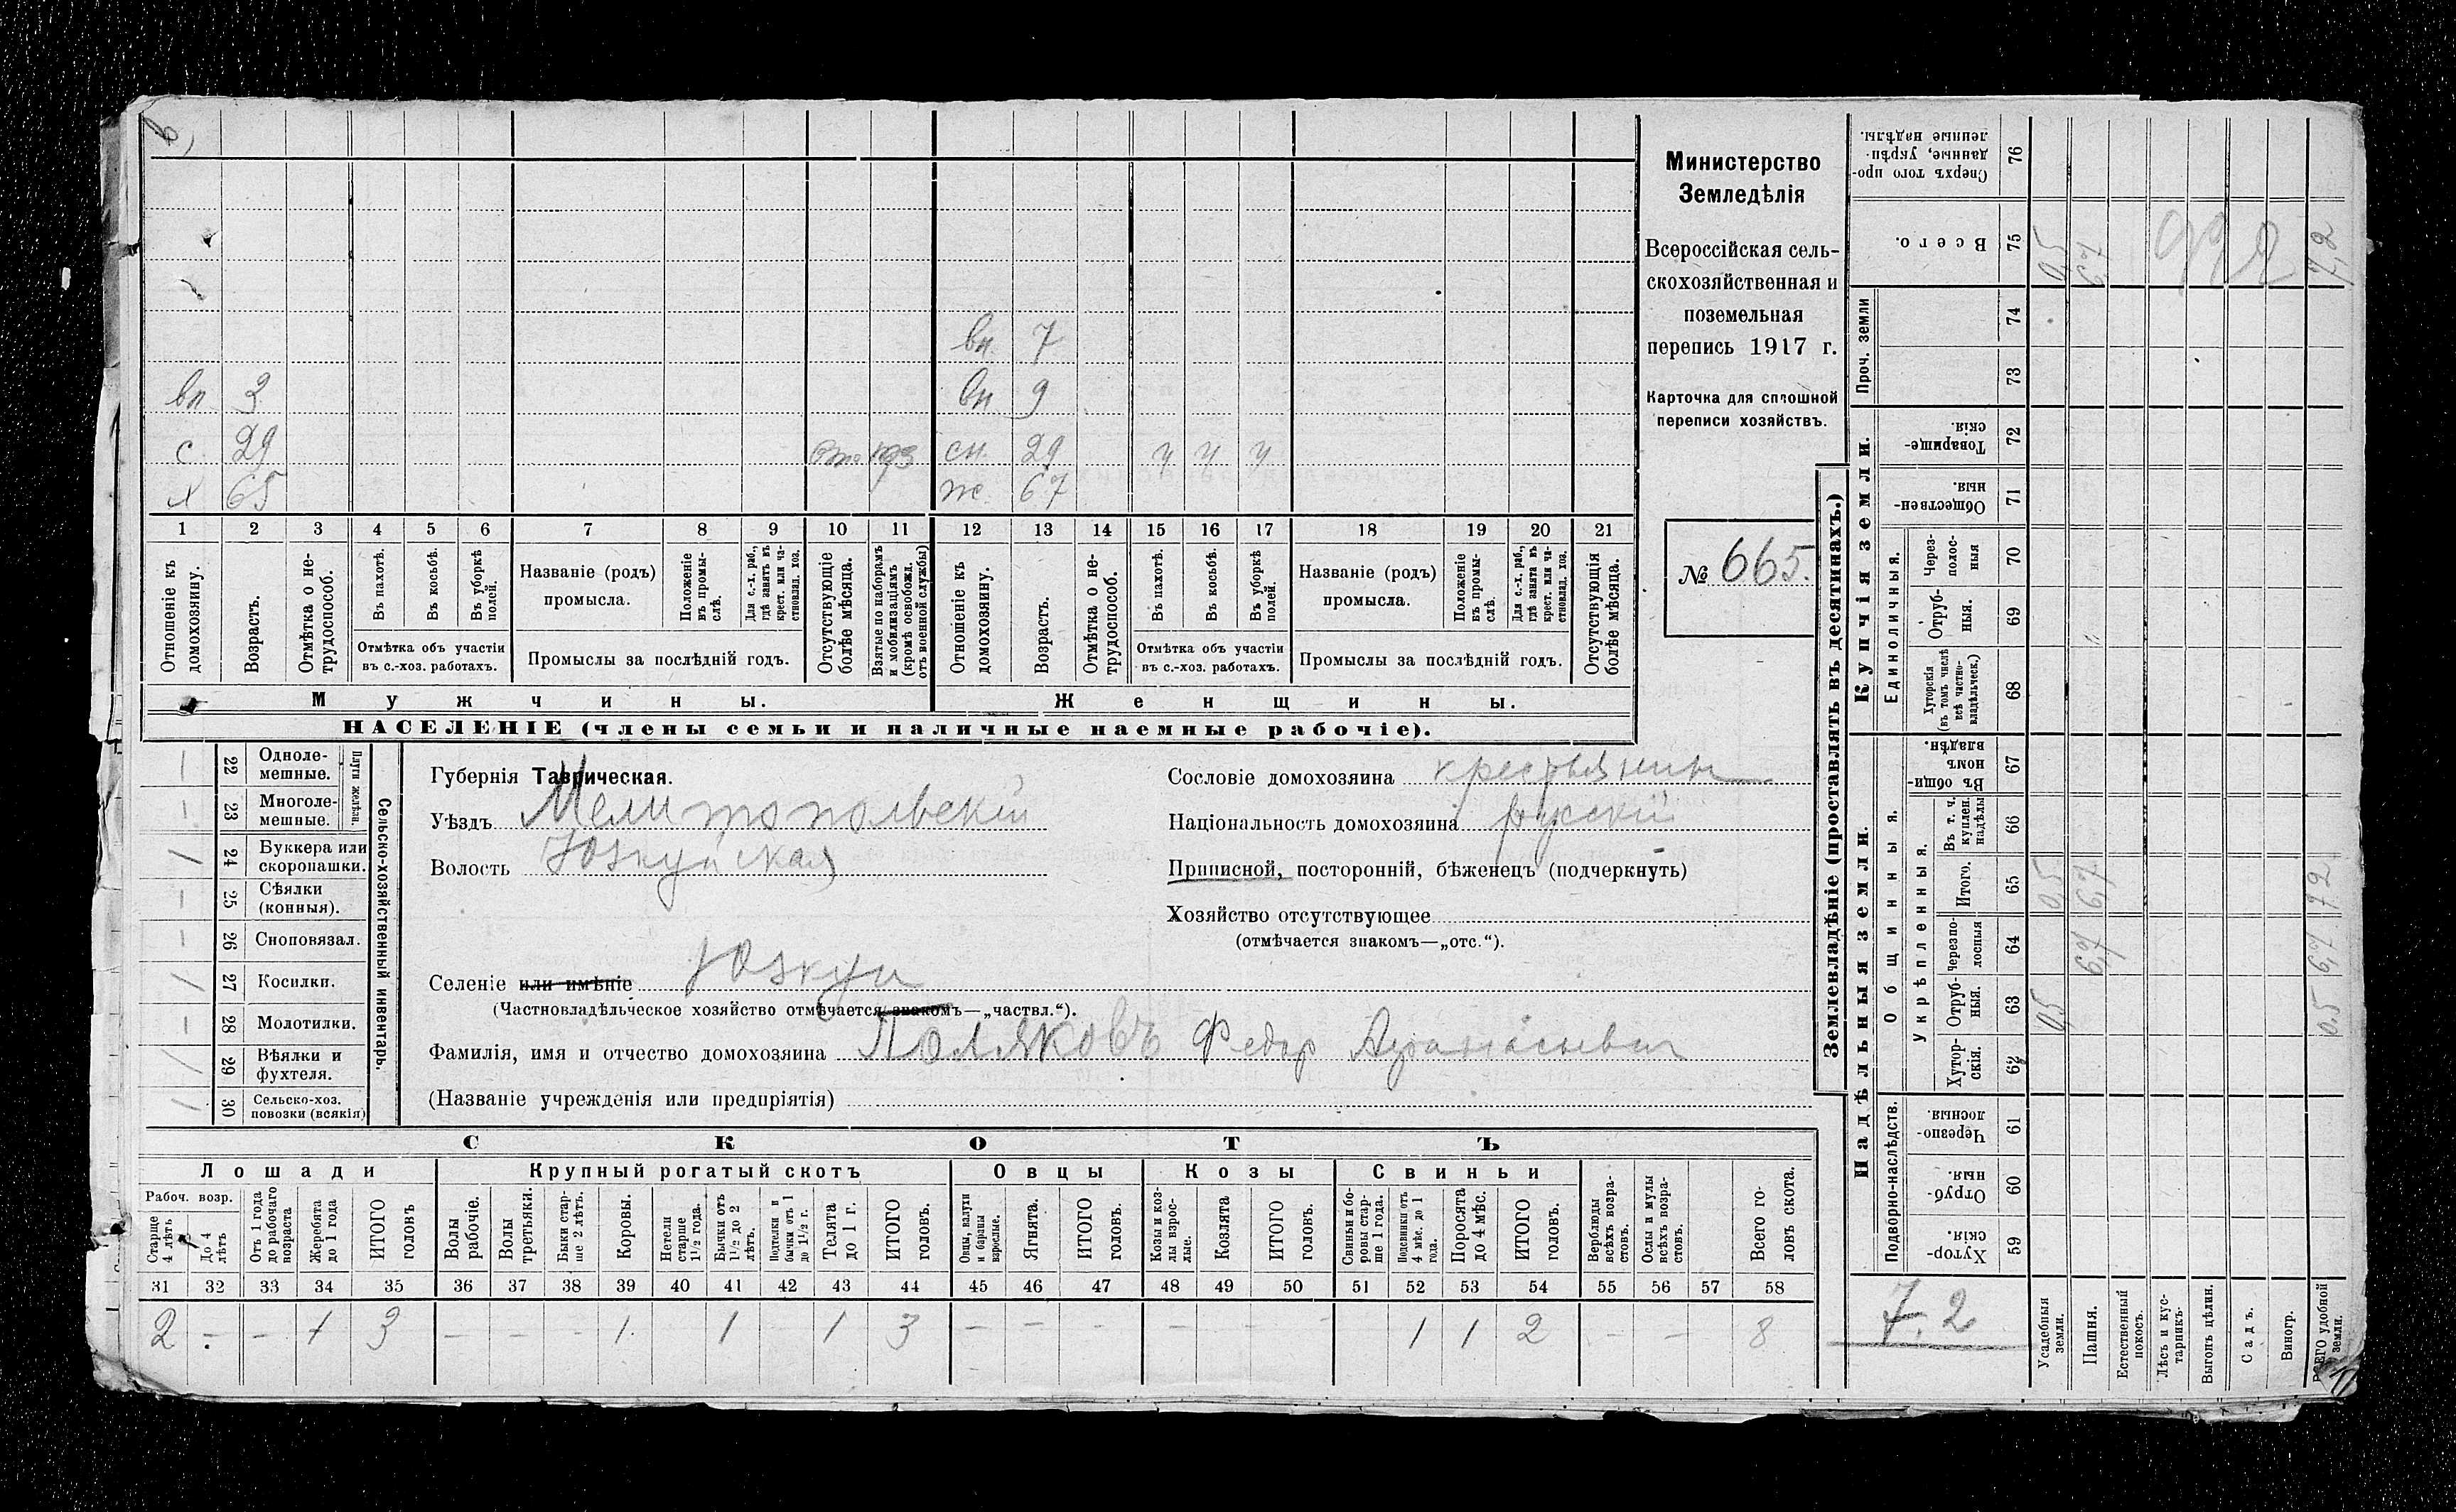 вн. 7
вн 3 вн 9
с 29 отс 1993 сн. 29 ч ч ч
х 65 ж. 67
1 2 3 4 5 6 7 8 9 10 11 12 13 14 15 16 17 18 19 20 21
Отношеніе къ домохозяину.
Возрастъ.
Отмѣтка о не-трудоспособ.
Въ пахотѣ.
Въ косьбѣ.
Въ уборкѣ полей.
Отмѣтка объ участіи
въ с.-хоз. работахъ.
Названіе (родъ)
промысла.
Положеніе въ промы-слѣ.
Для с.-х. раб., гдѣ занятъ въ крест. или ча-стновлад. хоз.
Промыслы за послѣдній годъ.
Отсутствующіе болѣе мѣсяца.
Взятые по наборамъ и мобилизаціямъ (кромѣ освобожд. отъ военной службы)
Отношеніе къ домохозяину.
Возрастъ.
Отмѣтка о не-трудоспособ.
Въ пахотѣ.
Въ косьбѣ.
Въ уборкѣ полей.
Отмѣтка объ участіи
въ с.-хоз. работахъ.
Названіе (родъ)
промысла.
Положеніе въ промы-слѣ.
Для с.-х. раб., гдѣ занята въ крест. или ча-стновлад. хоз.
Промыслы за послѣдній годъ.
Отсутствующія болѣе мѣсяца.
Мужчины.
Женщины.
НАСЕЛЕНІЕ (члены семьи и наличные наемные рабочіе).
Министерство
Земледѣлія
Всероссійская сель-
скохозяйственная и
поземельная
перепись 1917 г.
Карточка для сплошной
переписи хозяйствъ.
№ 665.
Сельско-хозяйственный инвентарь.
Плуги желѣзн.
— 22 Одноле-мешные.
— 23 Многоле-мешные.
/ 24 Буккера или скоропашки.
— 25 Сѣялки (конныя).
— 26 Сноповязал.
/ 27 Косилки.
— 28 Молотилки.
/ 29 Вѣялки и фухтеля.
/ 30 Сельско-хоз. повозки (всякія)
Губернія Таврическая.
Уѣздъ Мелитопольскій
Волость Юзкуйская
Селеніе или имѣніе Юзкуи
(Частновладѣльческое хозяйство отмѣчается знакомъ—„частвл.“).
Фамилія, имя и отчество домохозяина Поляковъ Федор Афанасьевич
(Названіе учрежденія или предпріятія)
Сословіе домохозяина крестьянин
Національность домохозяина рускій
Приписной, посторонній, бѣженецъ (подчеркнуть)
Хозяйство отсутствующее
(отмѣчается знакомъ—„отс.“).
СКОТЪ
Лошади
Крупный рогатый скотъ
Овцы
Козы
Свиньи
Рабоч. возр.
Старше 4 лѣтъ
До 4 лѣтъ
Отъ 1 года до рабочаго возраста
Жеребята до 1 года
ИТОГО головъ
Волы рабочіе.
Волы третьяки.
Быки стар-ше 2 лѣтъ.
Коровы.
Нетели старше 1½ года.
Бычки отъ 1½ до 2 лѣтъ.
Подтелки и бычки отъ 1 до 1½ г.
Телята до 1 г.
ИТОГО головъ.
Овцы, валухи и бараны взрослые.
Ягнята.
ИТОГО головъ.
Козы и коз-лы взрос-лые.
Козлята
ИТОГО головъ.
Свиньи и бо-ровы стар-ше 1 года.
Подсвинки отъ 4 мѣс. до 1 года.
Поросята до 4 мѣс.
ИТОГО головъ.
Верблюды всѣхъ возра-стовъ.
Ослы и мулы всѣхъ возра-стовъ.
Всего го-ловъ скота.
31 32 33 34 35 36 37 38 39 40 41 42 43 44 45 46 47 48 49 50 51 52 53 54 55 56 57 58
2 - - 1 3 - - - 1. 1 1 3 - - - - - - 1 1 2 - - 8
Землевладѣніе (проставлять въ десятинахъ.)
Купчія земли.
Надѣльныя земли.
Сверхъ того про-данные, укрѣп-ленные надѣлы. 76
Всего. 75 0,5 6,7 7,2
Проч. земли
74
73
Товарище-скія. 72
Обществен-ныя. 71
Единоличныя.
Через-полос-ныя 70
Отруб-ныя. 69
Хуторскія (въ томъ числѣ всѣ частно-владѣльческ.) 68
Общинныя.
Въ общи-номъ владѣн. 67
Укрѣпленныя.
Въ т. ч. куплен. надѣлы 66
Итого. 65 0,5 6,7 7,2
Черезпо-лосныя 64 6,7 6,7
Отруб-ныя. 63 0,5 0,5
Хутор-скія. 62
Подворно-наслѣдств.
Черезпо-лосныя. 61
Отруб-ныя. 60
Хутор-скія. 59
7.2
Усадебныя земли.
Пашня.
Естественный покосъ.
Лѣсъ и кус-тарникъ.
Выгонъ цѣлин.
Садъ.
Виногр.
ВСЕГО удобной земли.